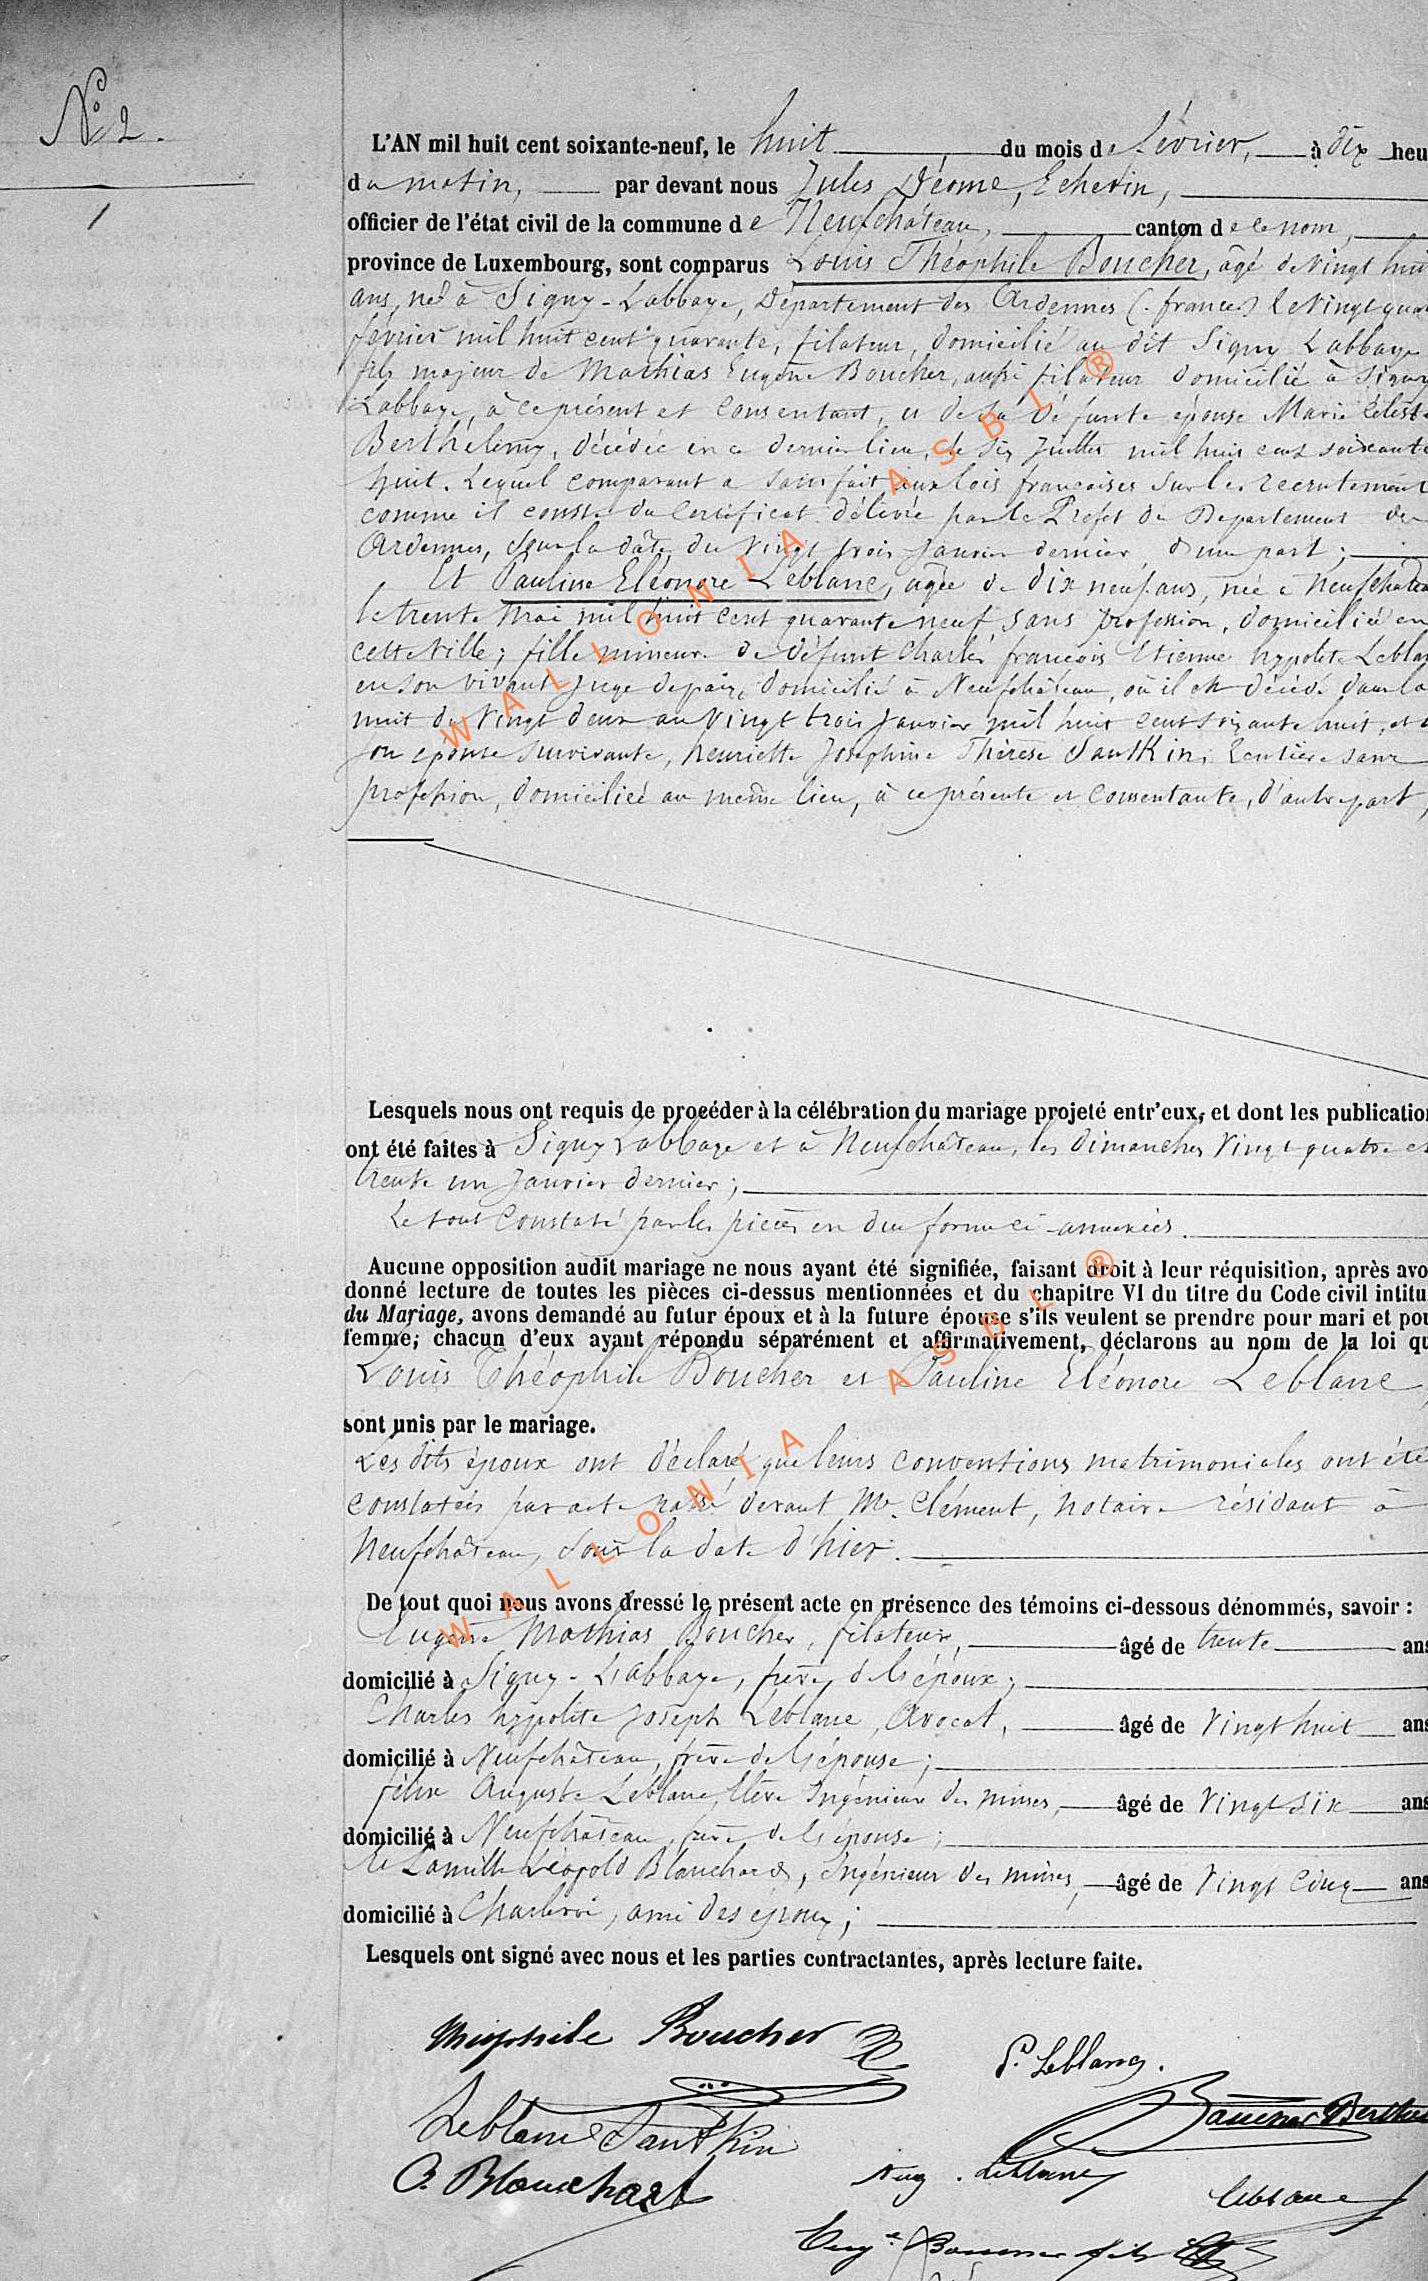 N° 2.
L'AN mil huit cent soixante-neuf, le huit du mois de février, à dix heu
du matin, par devant nous Jules Déome, Echevin,
officier de l'état civil de la commune de Neufchâteau, canton de ce nom,
province de Luxembourg, sont comparus Louis Théophile Boucher, âgé de vingt hui
ans, né à Signy-Labbaye, Département des Ardennes (france) le vingt qua
février mil huit cent quarante, filateur, domicilié au dit Signy Labbaye
fils majeur de Mathias Eugène Boucher, aussi filateur domicilié à Signy
Labbaye, à ce présent et consentant, et de sa défunte épouse Marie Céleste
Berthélemy, décédée en ce dernier lieu, le six Juillet mil huit cent soixante
huit. Lequel comparant a satisfait aux lois françaises sur le recrutement
comme il conste du certificat délivré par le Préfet du Département des
Ardennes, sous la date du vingt trois Janvier dernier d'une part;
Et Pauline Eléonore Leblanc, agée de dix neuf ans, née à Neufchâtea
le trente Mai mil huit cent quarante neuf sans profession, domiciliée en
cette ville; fille mineure de défunt Charles françois Etienne hypolite Leblan
en son vivant Juge de paix, domicilié à Neufchâteau, où il est décédé dans la
nuit du vingt deux au vingt trois Janvier mil huit cent soixante huit, et
son épouse survivante, henriette Joséphine Thérèse Santkin, Rentière sans
profession, domiciliée au même lieu, à ce présente et consentante, d'autre part,
Lesquels nous ont requis de procéder à la célébration du mariage projeté entr'eux, et dont les publication
ont été faites à Signy Labbaye et à Neufchâteau, les dimanches vingt quatre et
trente un Janvier dernier;
Le tout constaté par les pièces en due forme ci-annexées.
Aucune opposition audit mariage ne nous ayant été signifiée, faisant droit à leur réquisition, après avo
donné lecture de toutes les pièces ci-dessus mentionnées et du chapitre VI du titre du Code civil intitu
du Mariage, avons demandé au futur époux et à la future épouse s'ils veulent se prendre pour mari et pou
femme; chacun d'eux ayant répondu séparément et affirmativement, déclarons au nom de la loi qu
Louis Théophile Boucher et Pauline Eléonore Leblanc,
sont unis par le mariage.
Les dits époux ont déclaré que leurs conventions matrimoniales ont été
constatées par acte passé devant Me. Clément, notaire résidant à
Neufchâteau, sous la date d'hier.
De tout quoi nous avons dressé le présent acte en présence des témoins ci-dessous dénommés, savoir :
Eugène Mathias Boucher, filateur, âgé de trente ans
domicilié à Signy-Labbaye, frère de l'époux;
Charles hypolite Joseph Leblanc, Avocat, âgé de vingt huit ans
domicilié à Neufchâteau, frère de l'épouse;
félix Auguste Leblanc, Elève Ingénieur des mines, âgé de vingt six ans
domicilié à Neufchâteau, frère de l'épouse;
et Camille Léopold Blanchart, Ingénieur des mines, âgé de vingt cinq ans
domicilié à Charleroi, ami des époux;
Lesquels ont signé avec nous et les parties contractantes, après lecture faite.
Théophile Boucher
P. Leblanc.
Boucher Berthe
Leblanc Santkin
C. Blanchart
Aug. Leblanc
Leblanc
Eugne Boucher fils
WALLONIA ASBL ®
WALLONIA ASBL ®